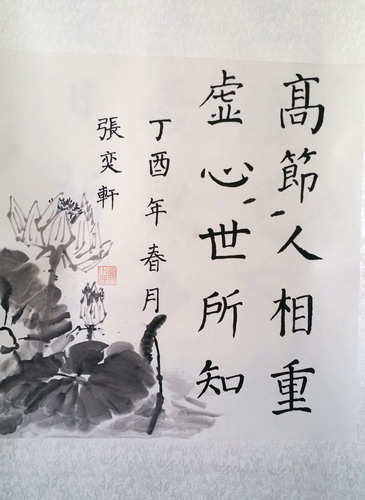 高節人相重
虛心世所知
丁酉年春月
張奕軒